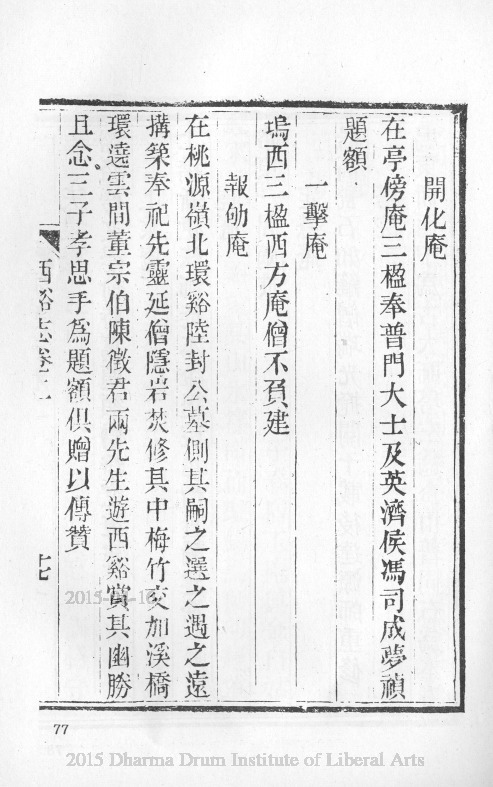 開化庵
在亭傍庵三楹奉普門大士及英濟侯馮司成夢禎
題額
一擊庵
塢西三楹西方庵僧不負建
報劬庵
在桃源嶺北環谿陸封公墓側其嗣之選之遇之遠
搆築奉祀先靈延僧隱岩焚修其中梅竹交加溪橋
環遶雲間董宗伯陳徵君兩先生遊西谿賞其幽勝
且念三子孝思手為題額俱贈以傳贊
西谿志卷二
77
2015 Dharma Drum Institute of Liberal Arts